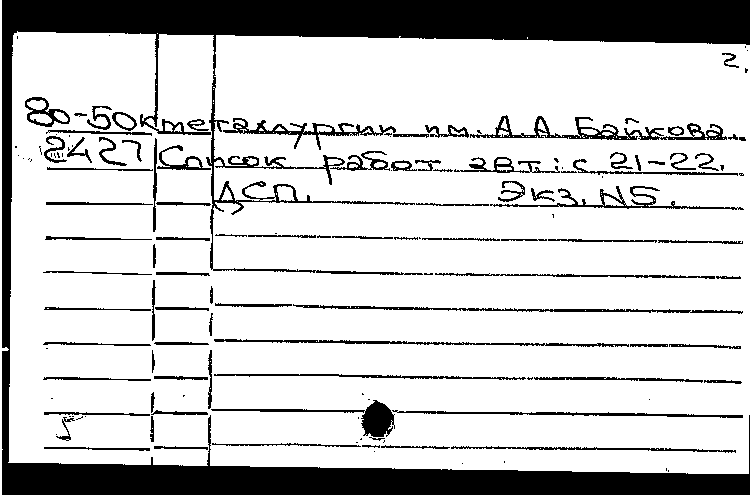 2.
80-50к металлургии им. А.А. Байкова.
2427 Список работ авт.: с 21-22.
ДСП. Экз. N5.
5